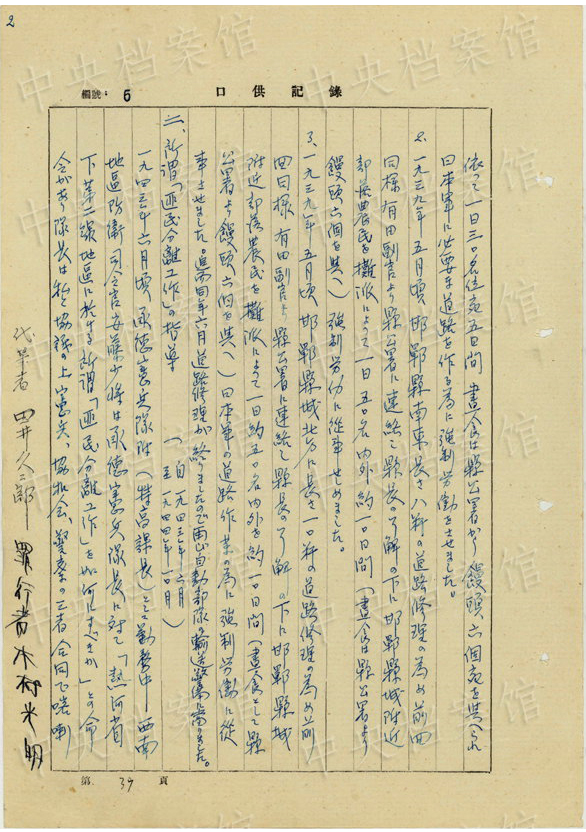 2
編號: 6
口供記錄
依って一日三〇名位宛五日間 晝食は縣公署から饅頭六個宛を與へられ
日本軍に必要な道路を作る為に強制労働をさせました。
2、一九三九年五月頃 邯鄲縣南東長さ八粁の道路修理の為め前回
同様有田副官より縣公署に連絡し縣長の了解の下に邯鄲縣城附近
部落農民を攤派によって一日五〇名内外約一〇日間(晝食は縣公署より
饅頭六個を與へ)強制労働に從事せしめました。
3、一九三九年五月頃 邯鄲縣城北方に長さ一〇粁の道路修理の為め前
回同様 有田副官より縣公署に連絡し縣長の了解の下に邯鄲縣城
附近部落農民を攤派によって一日約五〇名内外を約一〇日間(晝食として縣
公署より饅頭六個を與へ)日本軍の道路作業の為に強制労働に從
事させました。而同年六月道路修理が終りましたので自動車部隊輸送
二、所謂「匪民分離工作」の指導 (自一九四三年六月
至一九四四年一〇月)
一九四三年六月頃 承德憲兵隊附(特高課長)として勤務中 西南
地區防衛司令官安藤少將は承德憲兵隊長に対し「熱河省
下第二線地區に於ける所謂「匪民分離工作」を如何にすべきか」との命
令があり隊長は私と協議の上憲兵、協和会、警察の三者合同で喀喇
代筆者 四井久三郎 罪行者木村光明
第 39 頁
中央档案馆